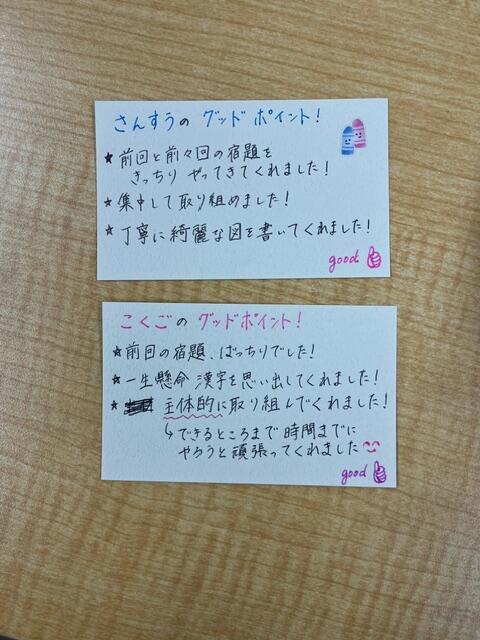 さんすうの グッド ポイント!
★前回と前々回の宿題を
きっちり やってきてくれました!
★集中して取り組めました!
★丁寧に綺麗な図を書いてくれました!
good
こくごの グッドポイント!
★前回の宿題、ばっちりでした!
★一生懸命 漢字を思い出してくれました!
★ 主体的に取り組んでくれました!
↳できるところまで 時間までに
やろうと頑張ってくれました
good